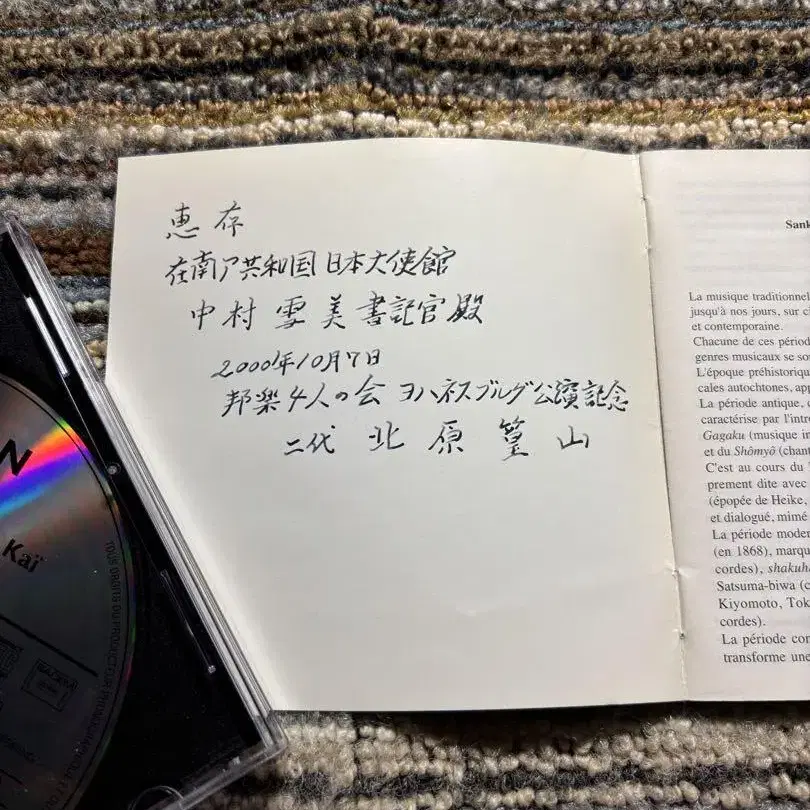 恵存
在南ア共和国日本大使館
中村雪美書記官殿
2000年10月7日
邦楽4人の会 ヨハネスブルグ公演記念
二代 北原篁山
N
Kaï
TOUS DROITS DU PRODUCTEUR PHONOGRAPHIQUE ET
SACEM
Sank
La musique traditionnel
jusqu'à nos jours, sur c
et contemporaine.
Chacune de ces périod
genres musicaux se sou
L'époque préhistoriqu
cales autochtones, app
La période antique, c
caractérise par l'intro
Gagaku (musique in
et du Shômyô (chant
C'est au cours du
prement dite avec
(épopée de Heike,
et dialogué, mimé
La période moder
(en 1868), marqu
cordes), shakuha
Satsuma-biwa (c
Kiyomoto, Tok
cordes).
La période con
transforme une